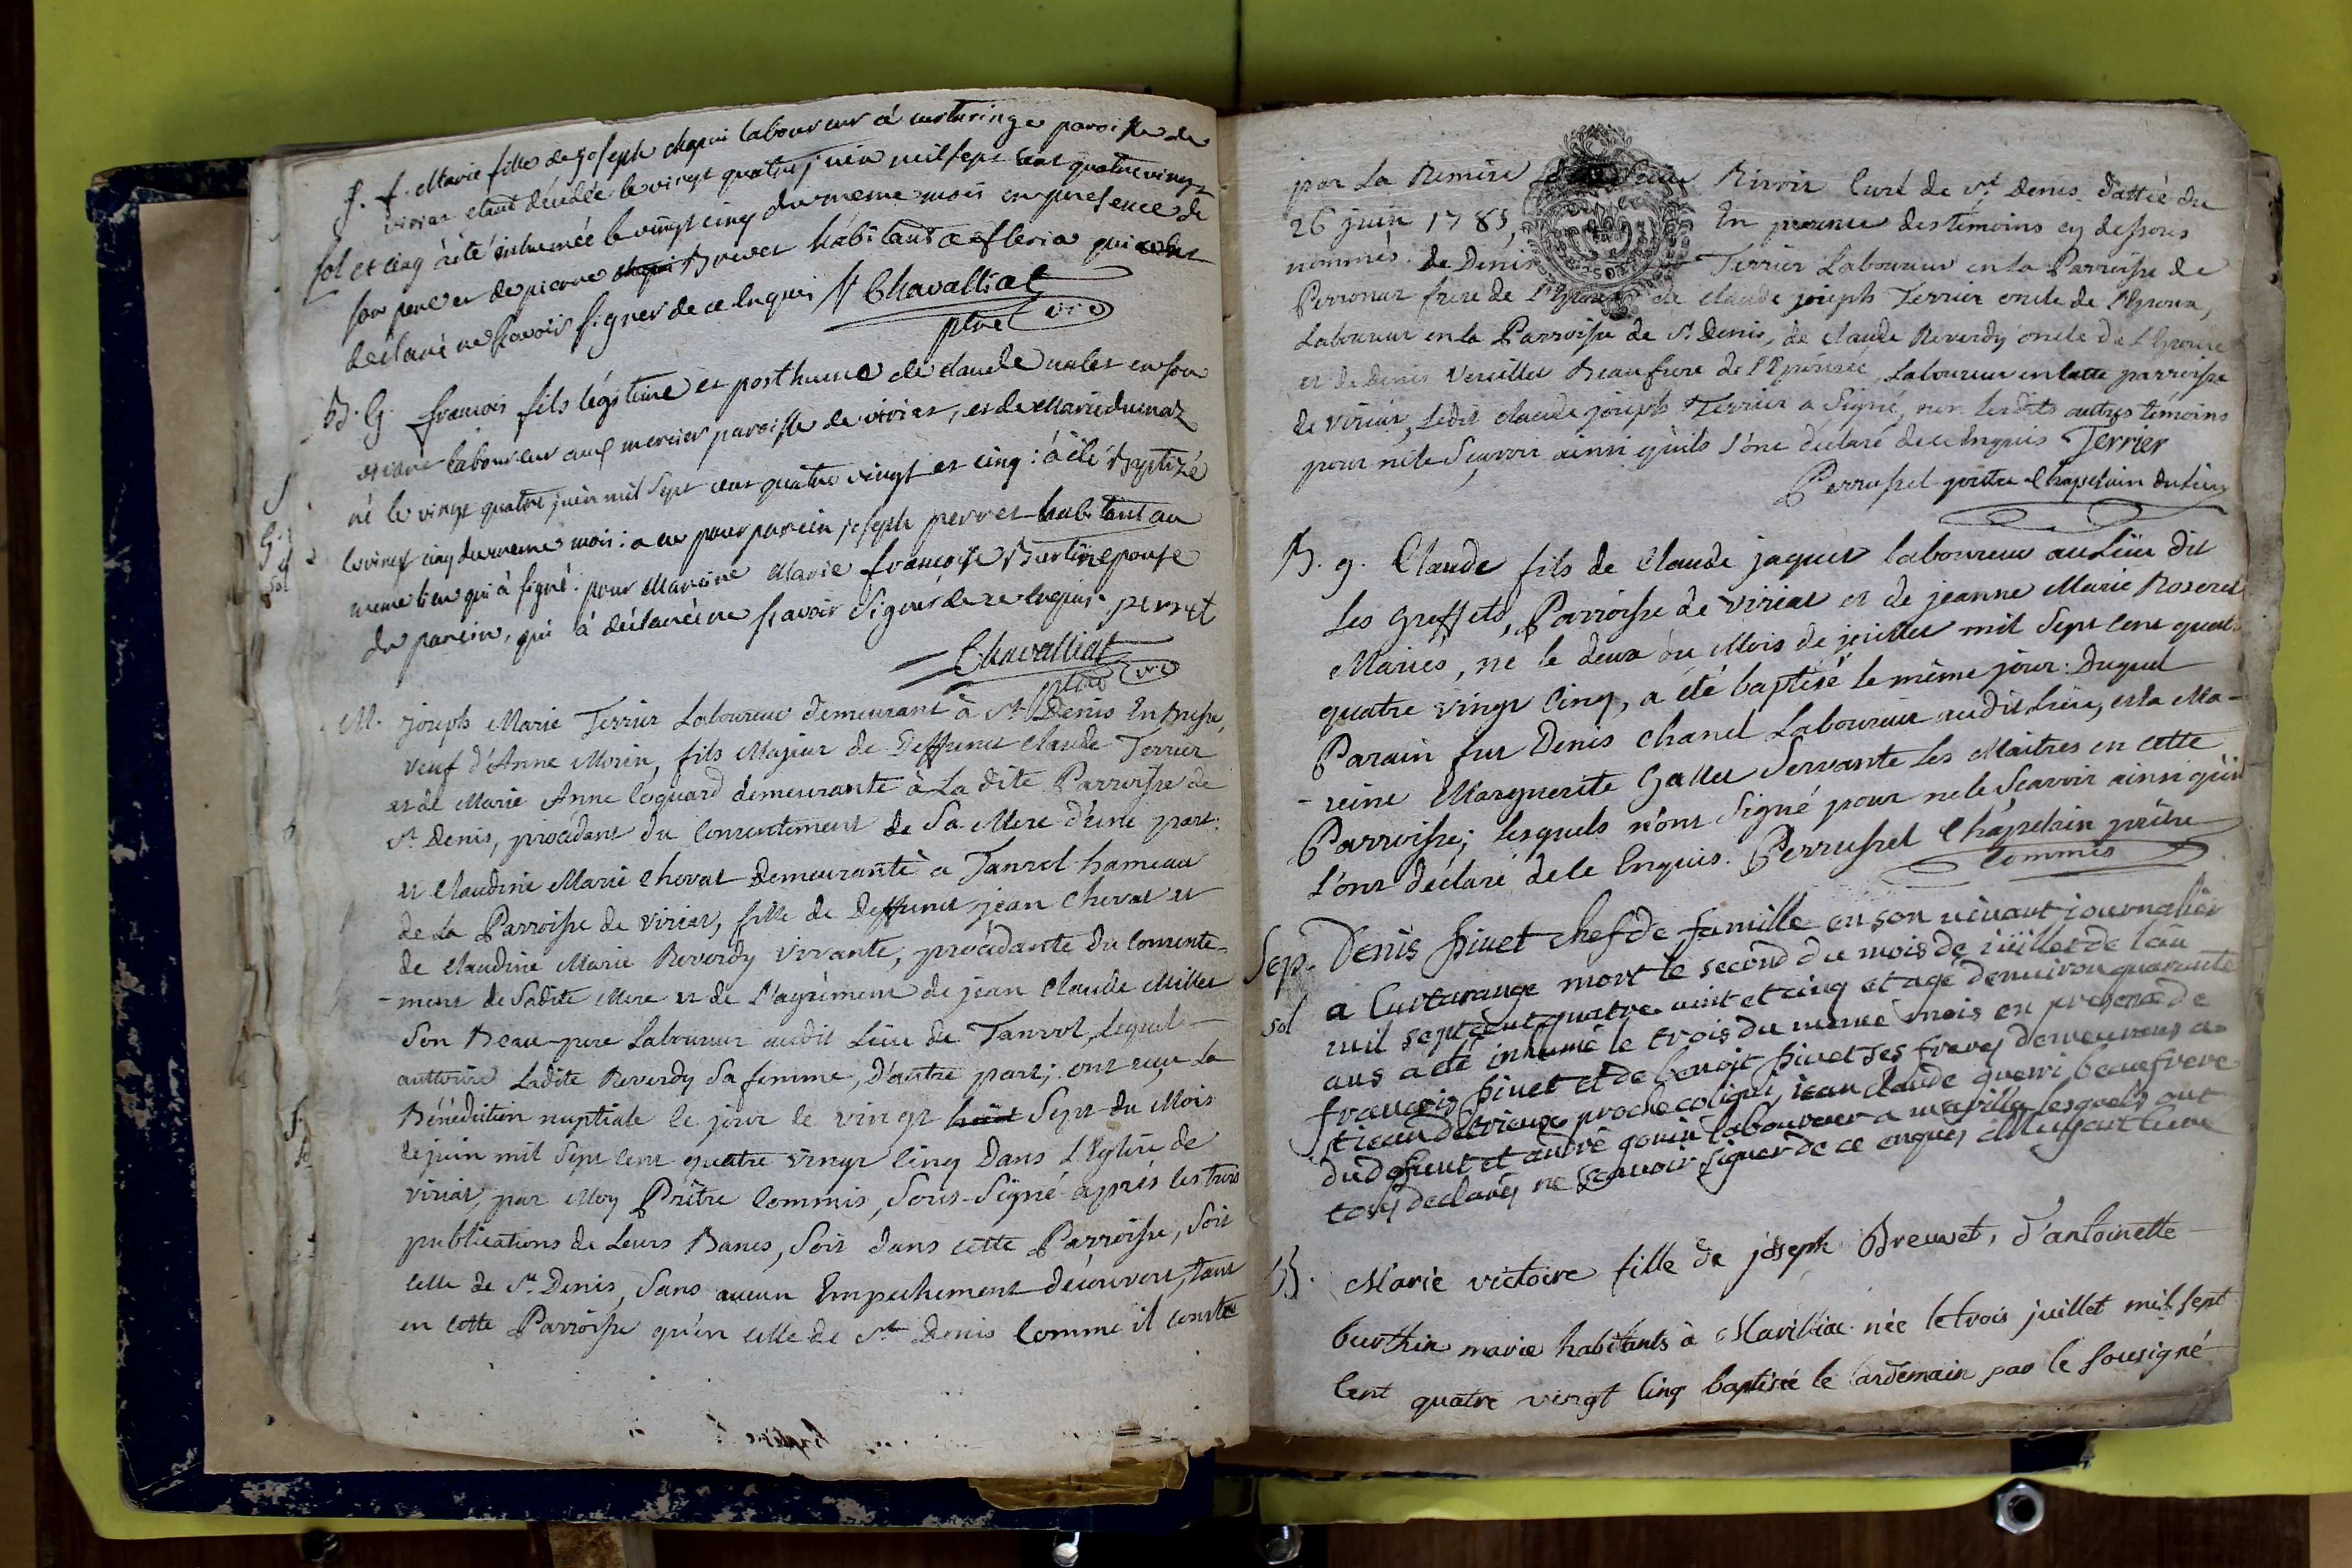 S. f. Marie fille de joseph chapui laboureur à curtaringe paroisse de
viriat etant décédée le vingt quatre juin mil sept cent quatre vingt
sol et cinq à été inhumée le vingt cinq du meme mois en presence de
son pere et de pierre Brevet habitant a fleria qui ont
declaré ne scavoir signer de ce enquis Chavalliat
ptre vic
B. G. françois fils légitime et posthume de claude nalet en son
vivant laboureur aux mercier paroisse de viriat, et de Marie dumaz
né le vingt quatre juin mil sept cent quatre vingt et cinq : à été Baptizé
le vingt cinq du meme mois : a eu pour parein joseph perret habitant au
meme lieu qui à signé : pour Mareine Marie françoise Burtin epouse
du parein, qui à déclaré ne scavoir signer de ce enquis. perret
Chavalliat
ptre vic
M. joseph Marie Terrier Laboureur demeurant à St Denis En Bresse,
veuf d'Anne Morin, fils Majeur de Deffunct Claude Terrier
et de Marie Anne loquard demeurante à La dite Parroisse de
St Denis, procédant du Consentement de Sa Mere d'une part.
et Claudine Marie Chevat Demeurante à Tanvol hameau
de La Parroisse de viriat, fille de Deffunct jean Chevat et
de Claudine Marie Reverdy vivante, procédante du Consente-
-ment de Sadite Mere et de L'agrément de jean Claude Millet
Son Beau-pere Laboureur audit Lieu de Tanvol, Lequel
authorise Ladite Reverdy Sa femme, d'autre part; ont reçu la
Bénédiction nuptiale le jour le vingt huit Sept du Mois
de juin mil Sept Cent quatre vingt Cinq Dans L'Eglise de
viriat, par Moy Prêtre Commis, Sous-Signé après les trois
publications de Leurs Bancs, Soit dans cette Parroisse, Soit
celle de St Denis, Sans aucun Empechement découvert, tant
en cette Parroisse qu'en celle de St Denis Comme il conste
par La Remise Rivoir Curé de St Denis. dattée du
26 juin 1785, En presence des temoins cy dessous
nommés. de Denis Terrier Laboureur en la Parroisse de
Perronas frere de l'Epoux de claude joseph Terrier oncle de l'Epoux,
Laboureur en la Parroisse de St Denis, de claude Reverdy oncle de L'Epouse
et de Denis Vuillet Beaufrere de l'Epousée, Laboureur en cette parroisse
de viriat, Ledit claude joseph Terrier a Signé, non lesdits autres témoins
pour ne le Scavoir ainsi qu'ils l'ont déclaré de ce Enquis Terrier
Perrusset prêtre Chapelain du lieu
B. g. Claude fils de Claude jaquet laboureur au Lieu du
Les Greffets, Parroisse de viriat et de jeanne Marie Roseret
Mariés, né le deux du Mois de juillet mil Sept Cent quat-
quatre vingt Cinq, a été baptisé le même jour : Duquel
Parain fut Denis Chanel Laboureur audit Lieu, et la Ma-
-reine Marguerite Gallet Servante Les Maitres en cette
Parroisse; lesquels n'ont Signé pour ne le Scavoir ainsi qu'il
L'ont déclaré de ce Enquis. Perrusset Chapelain prêtre
Commis
Sep. Denis pivet chef de famille en son vivant journalier
a Curtarange mort le second du mois de juillet de l'an
sol mil sept cent quatre vint et cinq et agé d'environ quarante
ans a été inhumé le trois du meme mois en presence de
françois pivet et de benoit pivet ses freres demeurans a
proche coligni, jean claude querri beaufrere
du defunt et andré gouin laboureur a marilla lesquels ont
tous declarés ne scavoir signer de ce enquis
B. Marie victoire fille de joseph Breuvet, d'antoinette
burthin mariés habitants à Marilliac née le trois juillet mil sept
Cent quatre vingt Cinq baptisée le landemain par le sousigné